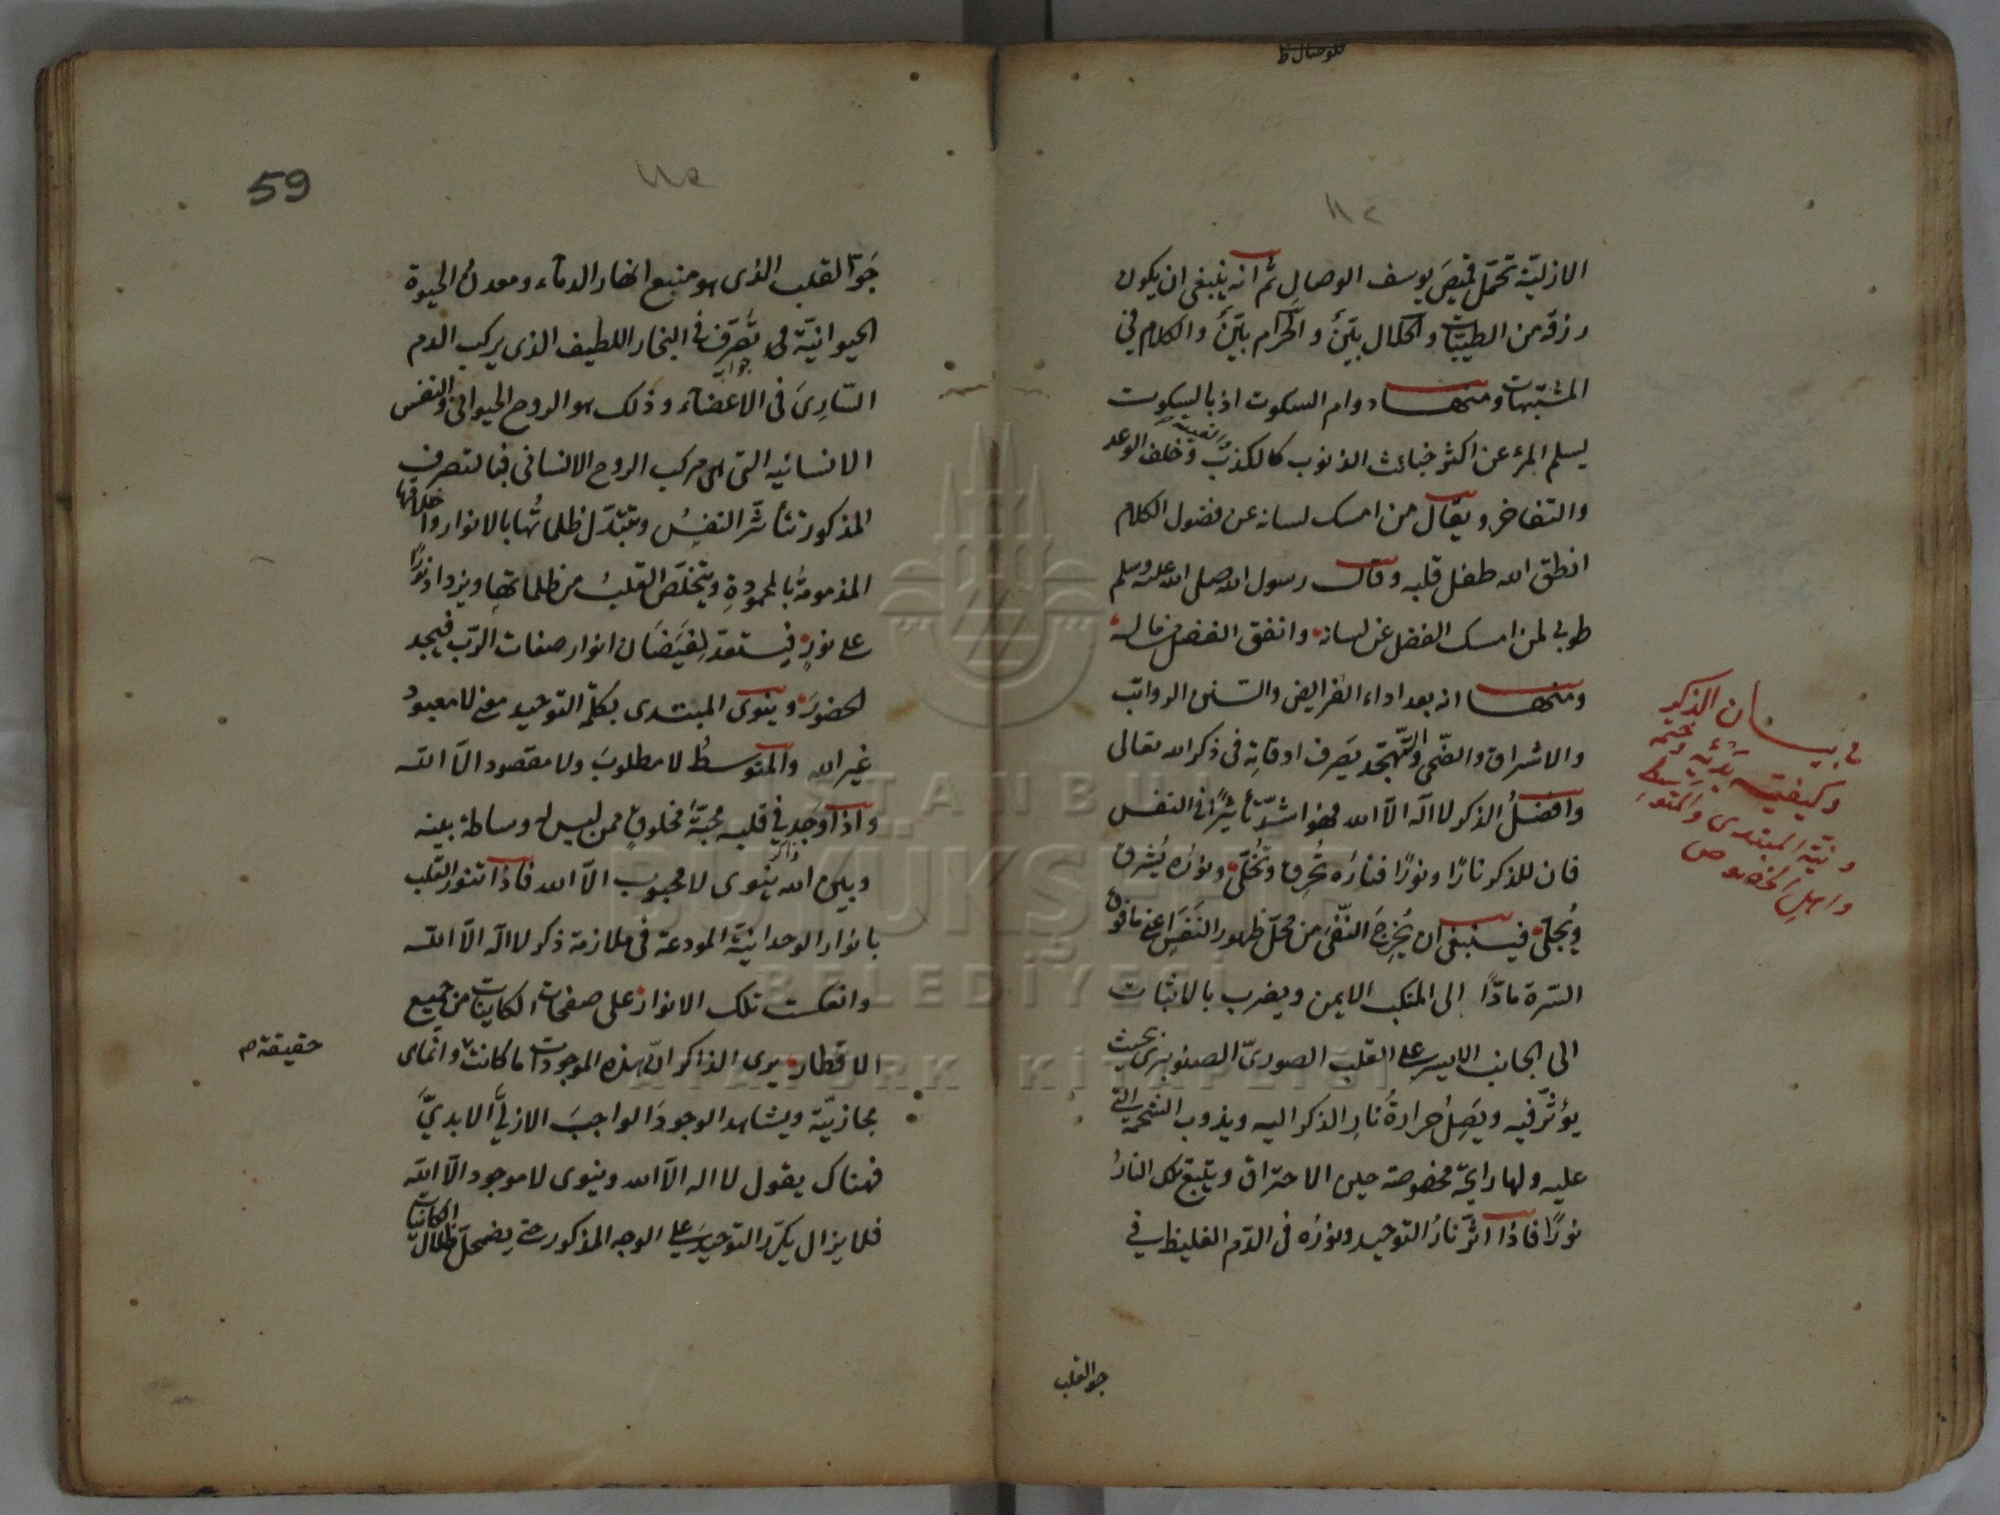 للوصال ظ
الازلية تحمل قميص يوسف الوصال ثم انه ينبغى ان يكون
رزقه من الطيبات والحلال بيّن والحرام بيّن والكلام فى
المشتبهات ومنها دوام السكوت اذ بالسكوت
يسلم المرء عن اكثر خبائث الذنوب كالكذب والغيبة وخلف الوعد
والتفاخر ويقال من امسك لسانه عن فضول الكلام
انطق الله طفل قلبه وقال رسول الله صلى الله عليه وسلم
طوبى لمن امسك الفضل عن لسانه وانفق الفضل من ماله
ومنها انه بعد اداء الفرايض والسنن الرواتب
والاشراق والضحى والتهجد يصرف اوقاته فى ذكر الله تعالى
وافضل الذكر لا اله الا الله فهو اشدّ تأثيرًا فى النفس
فان للذكر نارًا ونورًا فناره تُحرق وتُخلّى ونوره يُشرق
ويُجلّى فينبغى ان يُخرج النفى من محلّ ظهور النفس اعنى ما فوق
السرة مادًّا الى المنكب الايمن ويضرب بالاثبات
الى الجانب الايسر على القلب الصورىّ الصنوبرى بحيث
يؤثّر فيه ويصل حرارةُ نار الذكر اليه ويذوب الشحمة التى
عليه ولها رايحة مخصوصة حين الاحتراق ويتبع تلك النار
نورًا فاذا اثّر نار التوحيد ونوره فى الدم الغليظ فى
جو القلب
فى بيان الذكر
وكيفية بدئه وختمه
ونية المبتدى والمتوسط
واهل الخصوص
59
جوّ القلب الذى هو منبع انهار الدماء ومعدن الحيوة
الحيوانيّة تصرّف فى البخار اللطيف الذى يركب الدم
جواب
السّارى فى الاعضاء وذلك هو الروح الحيوانى والنفس
الانسانيه التى هى مركب الروح الانسانى فبالتصرف
المذكور تتأثّر النفس وتتبدّل ظلماتُها بالانوار واخلاقها
المذمومة بالمحمودة ويتخلّص القلب من ظلماتها ويزداد نورًا
على نورٍ فيستعدّ لفيضان انوار صفات الربّ فيجد
الحضور وينوى المبتدى بكلمة التوحيد معنى لا معبود
غير الله والمتوسط لا مطلوب ولا مقصود الا الله
واذا وجد فى قلبه محبّة مخلوقٍ ممن ليس له وساطة بينه
وبين الله ينوى لا محبوب الا الله فاذا تنور القلب
ذاكر
بانوار الوحدانيّة المودعة فى ملازمة ذكر لا اله الا الله
وانعكست تلك الانوار على صفحات الكاينات من جميع
الاقطار يرى الذاكر انّ هذه الموجودات ما كانت وانما هى
حقيقة م
مجازيّة ويشاهد الوجود الواجب الازلىّ الابدىّ
فهناك يقول لا اله الا الله وينوى لا موجود الا الله
فلا يزال يكرّر التوحيد على الوجه المذكور حتى يضمحلّ ظلال الكائنات